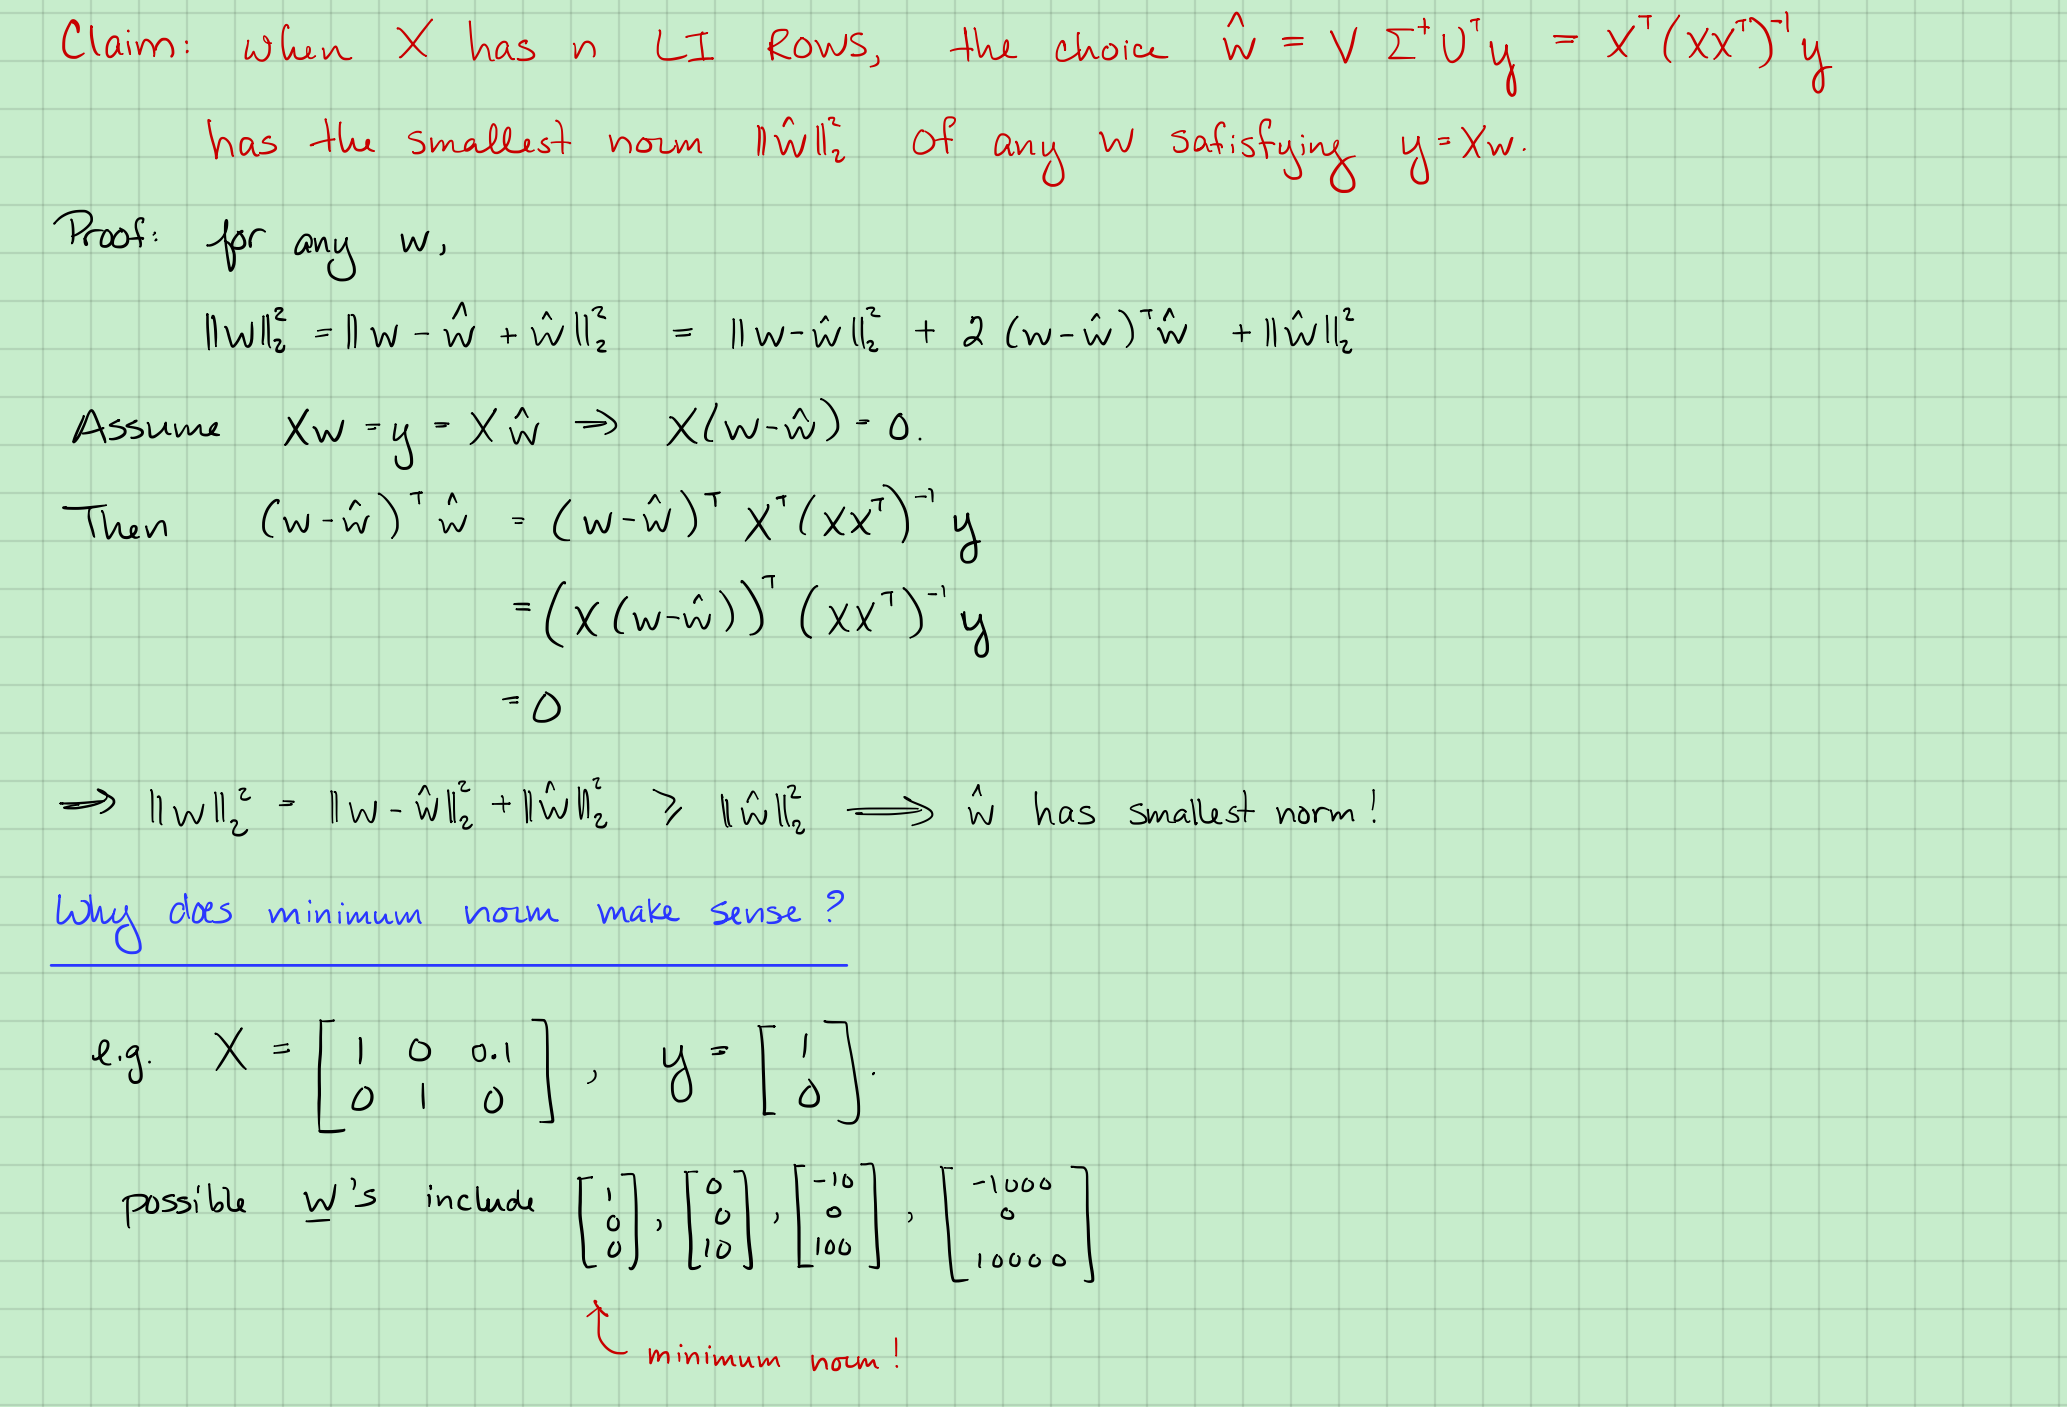 Claim: when X has n LI ROWS, the choice ŵ = V Σ⁺ Uᵀy = Xᵀ(XXᵀ)⁻¹y
has the smallest norm ‖ŵ‖₂² of any w satisfying y=Xw.
Proof: for any w,
‖w‖₂² = ‖w - ŵ + ŵ‖₂² = ‖w-ŵ‖₂² + 2 (w-ŵ)ᵀŵ + ‖ŵ‖₂²
Assume Xw = y = Xŵ ⇒ X(w-ŵ) = 0.
Then (w-ŵ)ᵀ ŵ = (w-ŵ)ᵀ Xᵀ(XXᵀ)⁻¹ y
= (X(w-ŵ))ᵀ (XXᵀ)⁻¹ y
= 0
⇒ ‖w‖₂² = ‖w-ŵ‖₂² + ‖ŵ‖₂² ≥ ‖ŵ‖₂² ⟹ ŵ has smallest norm!
Why does minimum norm make sense?
e.g. X = [1 0 0.1; 0 1 0], y = [1; 0].
possible w's include [1; 0; 0], [0; 0; 10], [-10; 0; 100], [-1000; 0; 10000]
minimum norm!